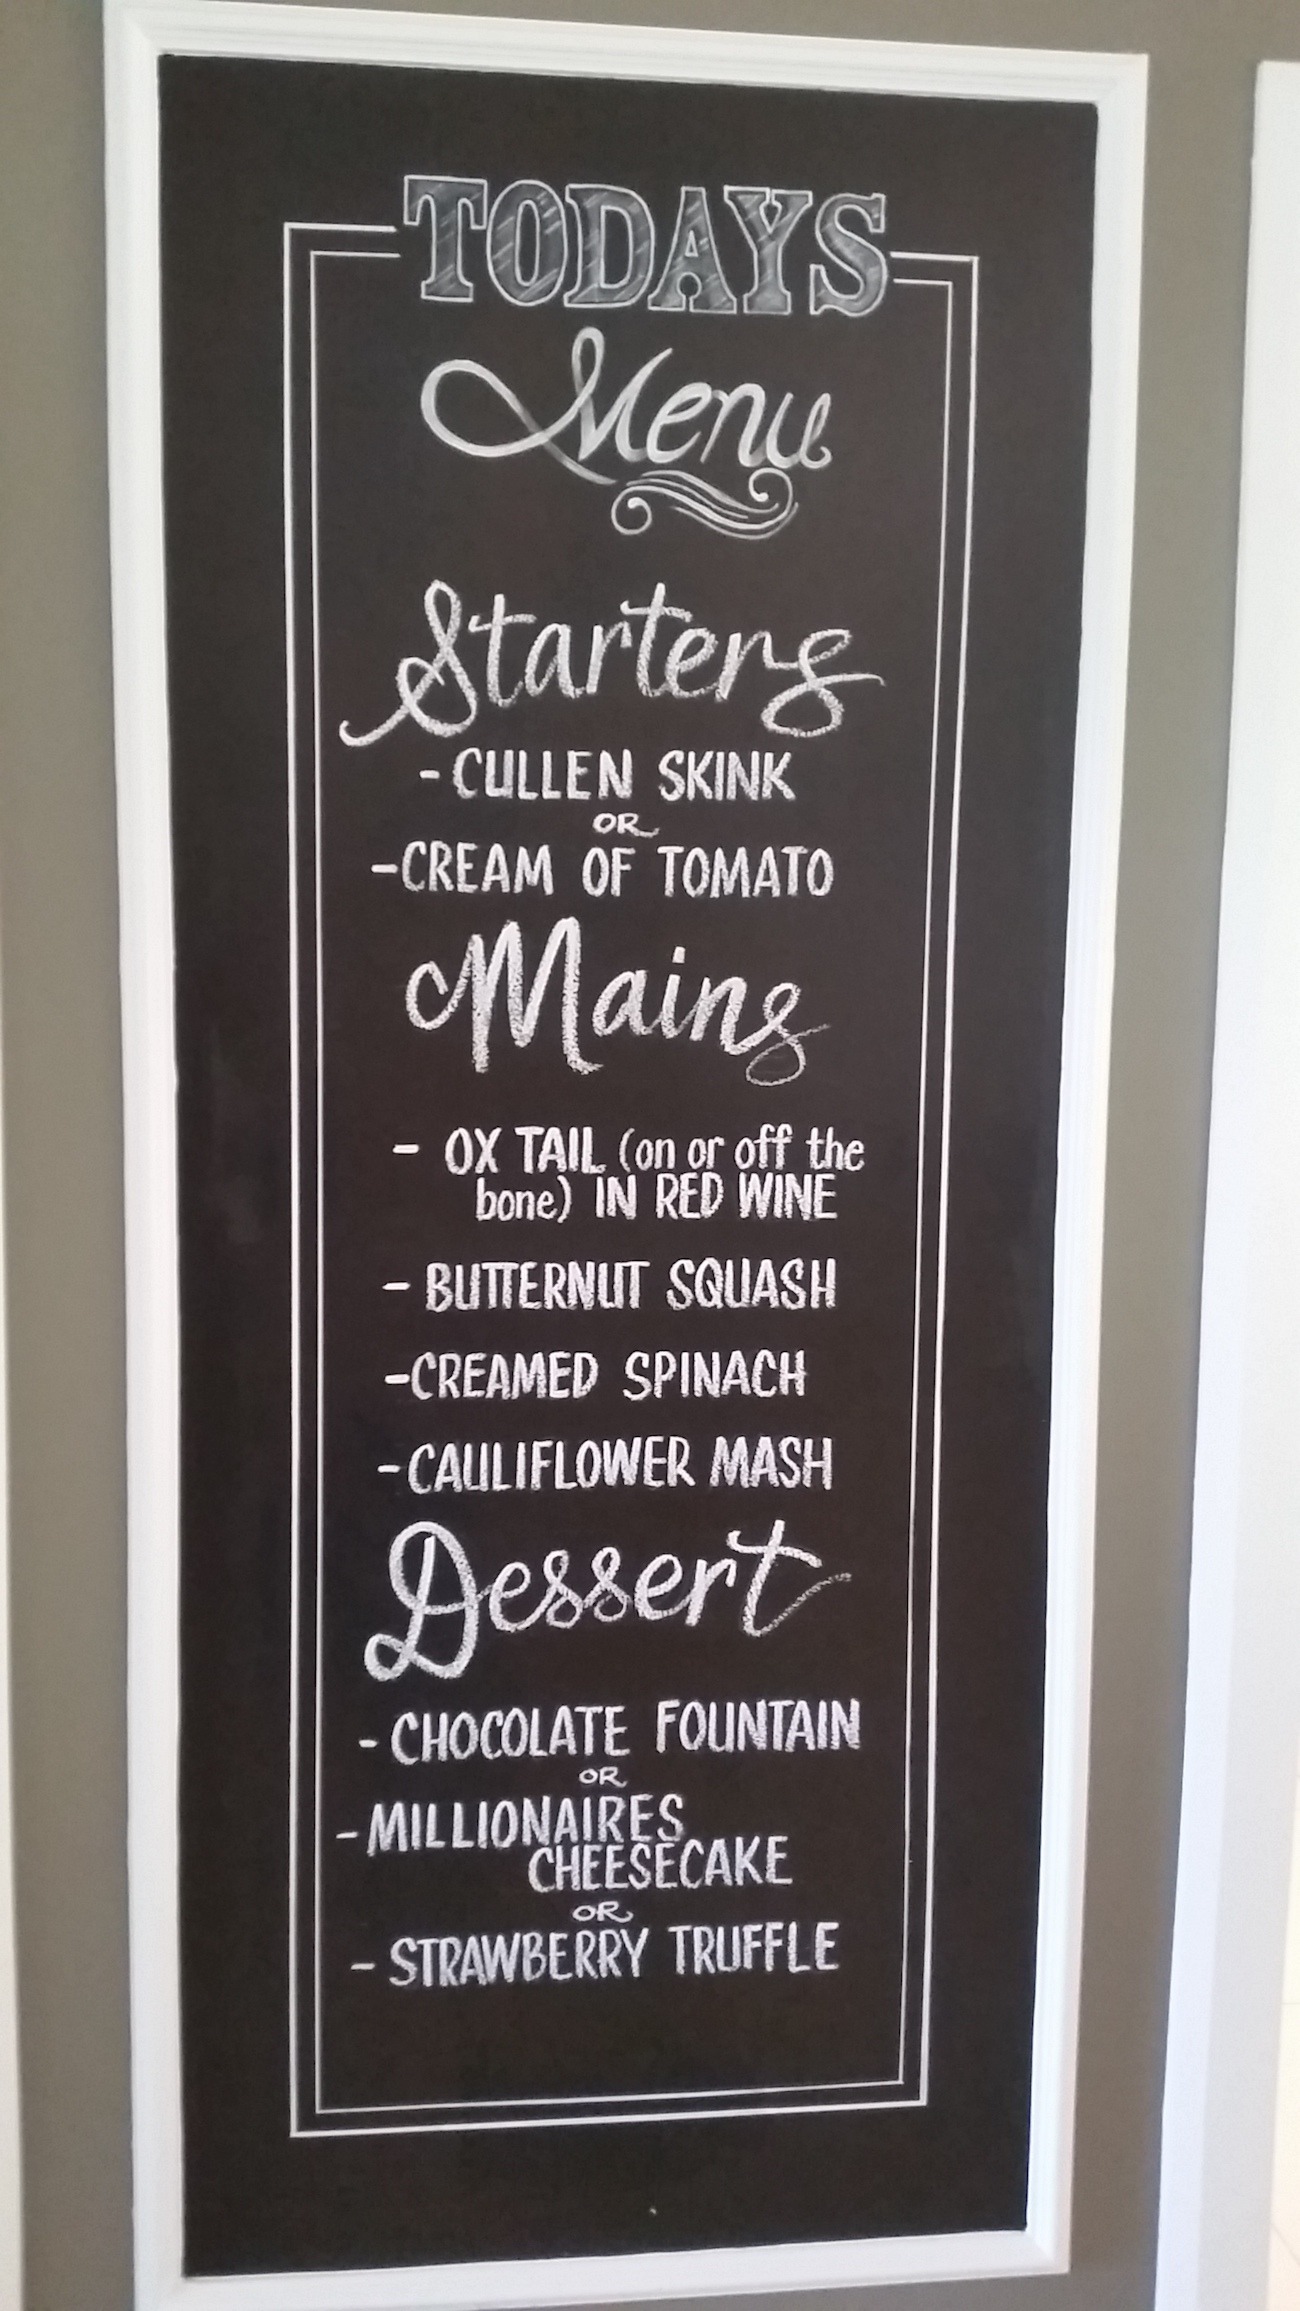 TODAYS
Menu
Starters
- CULLEN SKINK
OR
- CREAM OF TOMATO
Mains
- OX TAIL (on or off the
bone) IN RED WINE
- BUTTERNUT SQUASH
- CREAMED SPINACH
- CAULIFLOWER MASH
Dessert
- CHOCOLATE FOUNTAIN
OR
- MILLIONAIRES
CHEESECAKE
OR
- STRAWBERRY TRUFFLE